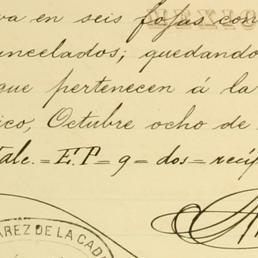 va en seis fojas con
ncelados; quedando
que pertenecen á la
ico, Octubre ocho de
ale. = E. P = 9 = dos = recip
AREZ DE LA CAD